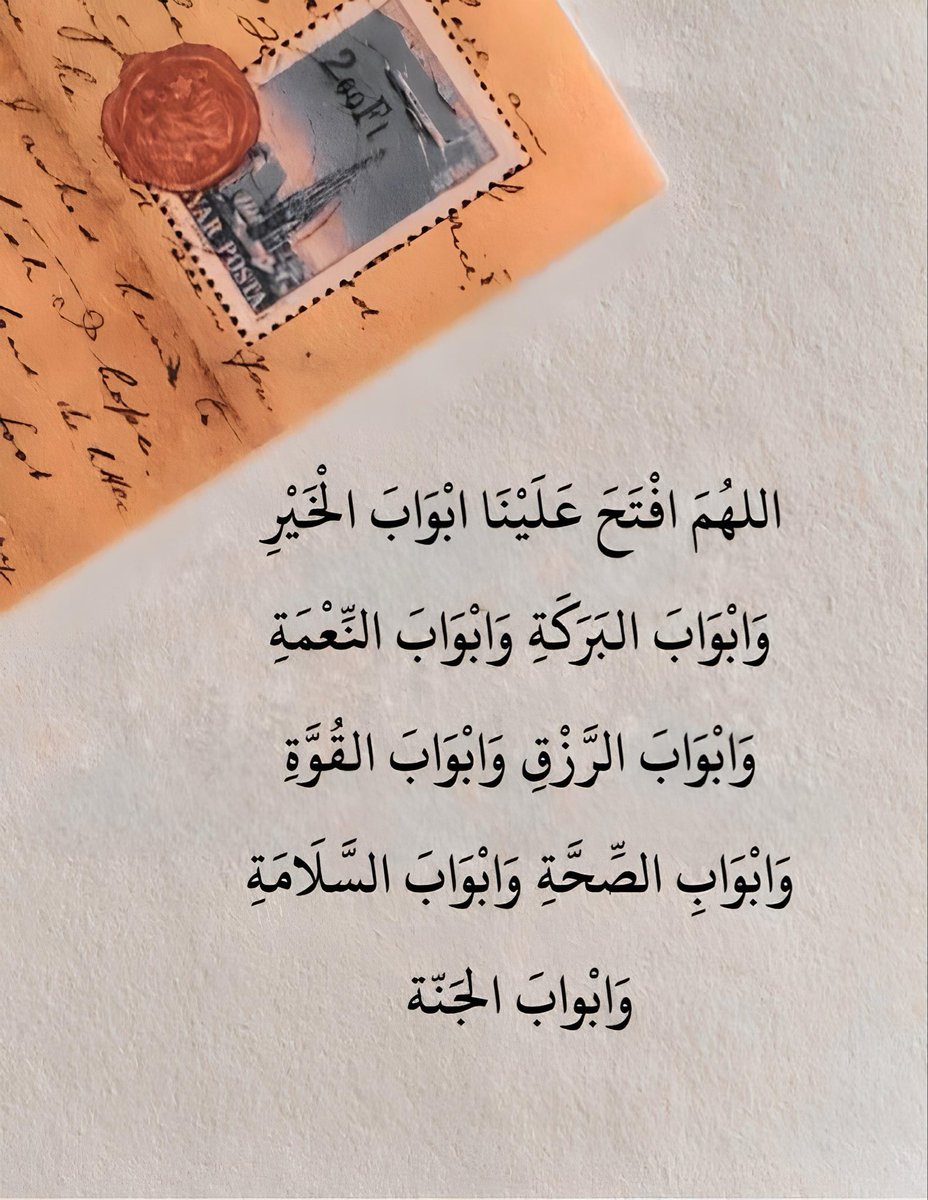 200Ft
YAR POSTA
you.
hope.
اللهُمَ افْتَحَ عَلَيْنَا ابْوَابَ الْخَيْرِ
وَابْوَابَ البَرَكَةِ وَابْوَابَ النِّعْمَةِ
وَابْوَابَ الرَّزْقِ وَابْوَابَ القُوَّةِ
وَابْوَابِ الصِّحَّةِ وَابْوَابَ السَّلَامَةِ
وَابْوابَ الجَنّة